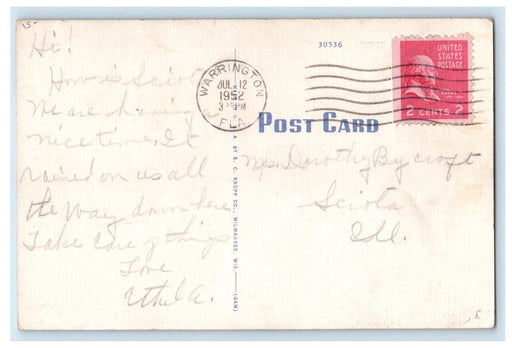 15-
Hi!
How is Sciota
We are having
nice time. It
rained on us all
the way down here
Take care of things
Love
Ethel A.
30536
WARRINGTON
JUL 12
1952
FLA
UNITED
STATES
POSTAGE
2 CENTS 2
POST CARD
Mrs. Dorothy Bycroft
Sciota
Ill.
E. C. KROPP CO., MILWAUKEE, WIS.